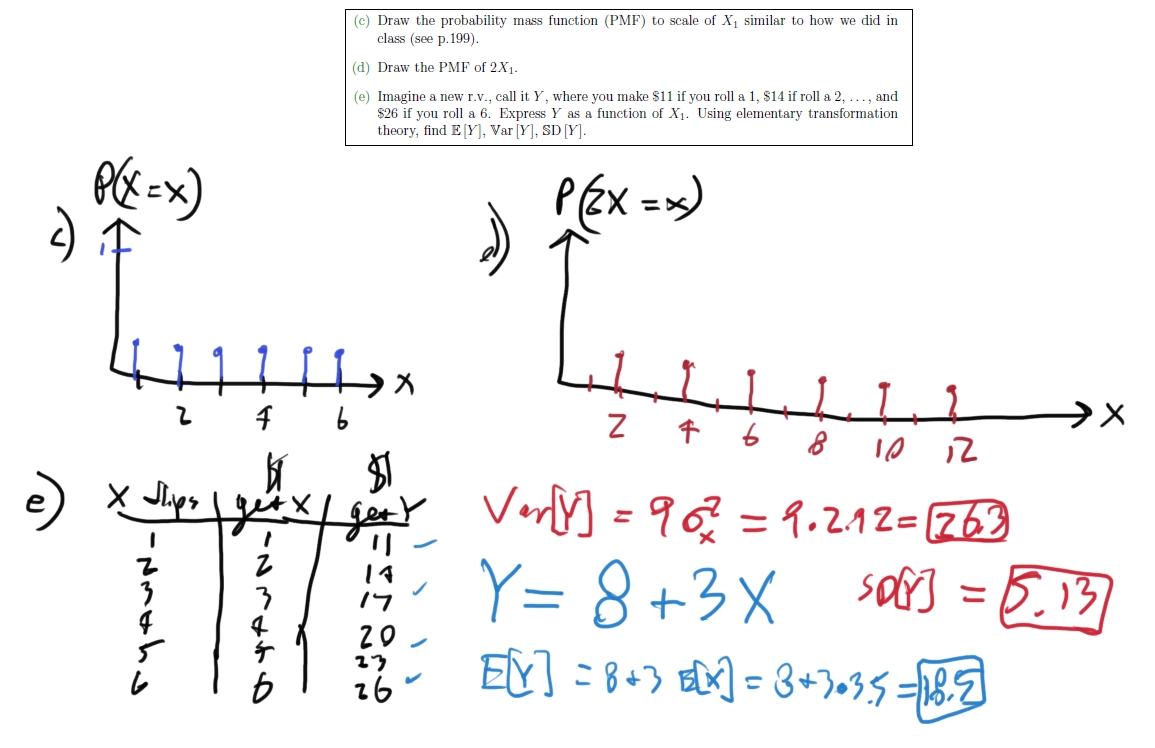 (c) Draw the probability mass function (PMF) to scale of X₁ similar to how we did in
class (see p.199).
(d) Draw the PMF of 2X₁.
(e) Imagine a new r.v., call it Y, where you make $11 if you roll a 1, $14 if roll a 2, ..., and
$26 if you roll a 6. Express Y as a function of X₁. Using elementary transformation
theory, find 𝔼[Y], 𝕍ar[Y], 𝕊𝔻[Y].
c) P(X=x)
1
2 4 6 X
d) P(2X=x)
2 4 6 8 10 12 X
e) X slips | $ get X | $ get Y
1 1 11
2 2 14
3 3 17
4 4 20
5 5 23
6 6 26
Var[Y] = 9σ²ₓ = 9·2.92 = 26.3
Y = 8 + 3X
SD[Y] = 5.13
E[Y] = 8+3 E[X] = 8+3·3.5 = 18.5